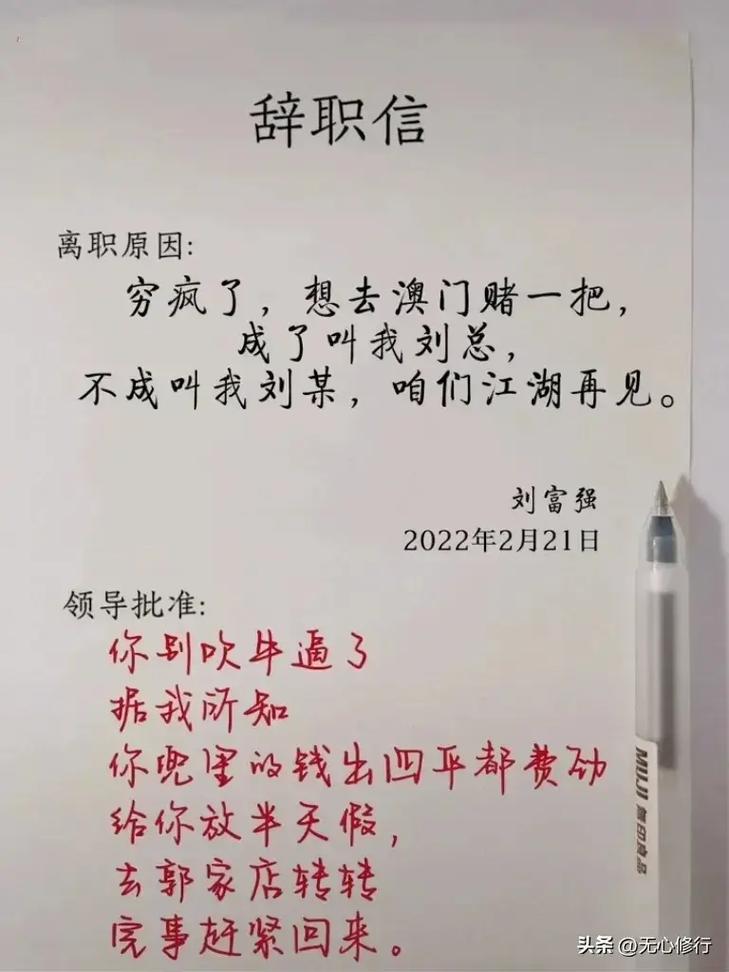 辞职信
离职原因:
穷疯了，想去澳门赌一把，
成了叫我刘总，
不成叫我刘某，咱们江湖再见。
刘富强
2022年2月21日
领导批准:
你别吹牛逼了
据我所知
你兜里的钱出四平都费劲
给你放半天假，
去郭家店转转
完事赶紧回来。
MUJI 無印良品
头条 @无心修行